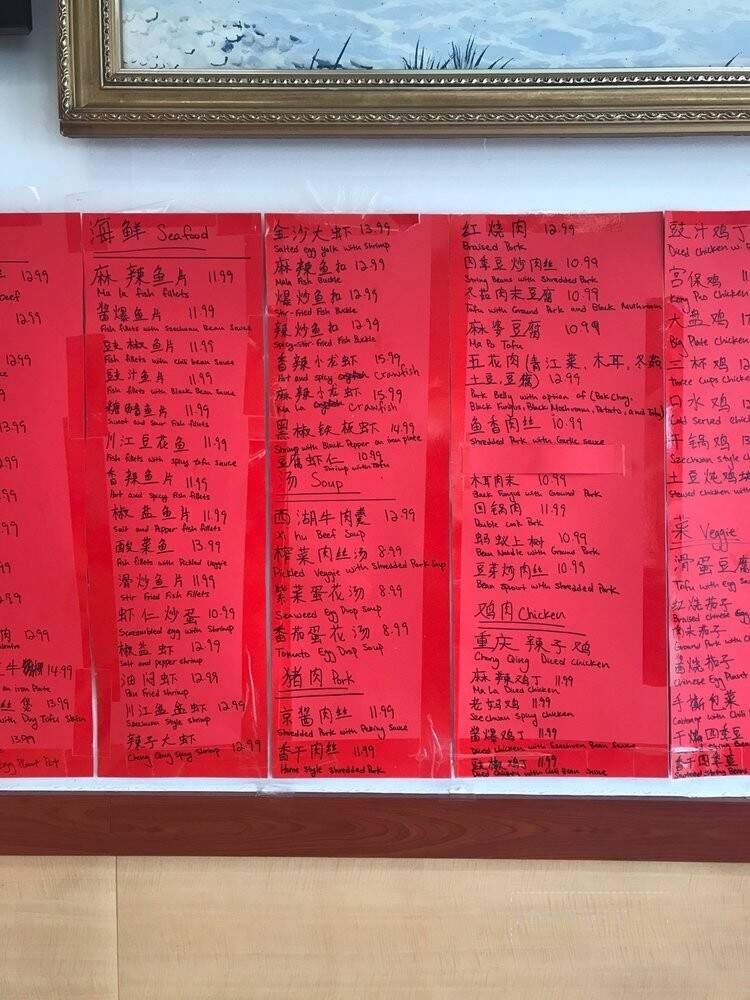 12.99
12.99
12.99
13.99
14.99
an iron Plate
13.99
with Dry Tofu Skin
13.99
Egg Plant Pot
海鲜 Seafood
麻辣鱼片 11.99
Ma la fish fillets
酱爆鱼片 11.99
Fish fillets with Szechuan Bean Sauce
豉椒鱼片 11.99
Fish fillets with Chili bean Sauce
豉汁鱼片 11.99
Fish fillets with Black Bean Sauce
糖醋鱼片 11.99
Sweet and Sour Fish fillets
川江豆花鱼 11.99
Fish fillets with spicy tofu sauce
香辣鱼片 11.99
Hot and Spicy Fish fillets
椒盐鱼片 11.99
Salt and Pepper fish fillets
酸菜鱼 13.99
Fish fillets with Pickled Veggie
滑炒鱼片 11.99
Stir Fried Fish Fillets
虾仁炒蛋 10.99
Screambled egg with Shrimp
椒盐虾 12.99
Salt and pepper shrimp
油闷虾 12.99
Pan Fried shrimp
川江盆盆虾 12.99
Szechuan Style shrimp
辣子大虾 12.99
Chong Qing Spicy shrimp
金沙大虾 13.99
Salted egg yolk with Shrimp
麻辣鱼扣 12.99
Mala Fish Buckle
爆炒鱼扣 12.99
Stir-Fried Fish Buckle
辣炒鱼扣 12.99
Spicy-Stir-Fried Fish Buckle
香辣小龙虾 15.99
Hot and spicy Crawfish
麻辣小龙虾 15.99
Ma La Crawfish
黑椒铁板虾 14.99
Shrimp with Black Pepper on iron plate
豆腐虾仁 10.99
Shrimp with Tofu
汤 Soup
西湖牛肉羹 12.99
Xi hu Beef Soup
榨菜肉丝汤 8.99
Pickled Veggie with Shredded Pork Soup
紫菜蛋花汤 8.99
Seaweed Egg Drop Soup
番茄蛋花汤 8.99
Tomato Egg Drop Soup
猪肉 Pork
京酱肉丝 11.99
Shredded Pork with Peking Sauce
香干肉丝 11.99
Home Style Shredded Pork
红烧肉 12.99
Braised Pork
四季豆炒肉丝 10.99
String Beans with Shredded Pork
冬菇肉末豆腐 10.99
Tofu with Ground Pork and Black Mushroom
麻婆豆腐 10.99
Ma Po Tofu
五花肉 (青江菜, 木耳, 冬菇
土豆, 豆腐) 12.99
Pork Belly with option of (Bok Choy,
Black Fungus, Black Mushroom, Potato, and Tofu)
鱼香肉丝 10.99
Shredded Pork with Garlic sauce
木耳肉末 10.99
Black Fungus with Ground Pork
回锅肉 11.99
Double Cook Pork
蚂蚁上树 10.99
Bean Noodle with Ground Pork
豆芽炒肉丝 10.99
Bean Sprout with Shredded Pork
鸡肉 Chicken
重庆辣子鸡
Chong Qing Diced Chicken
麻辣鸡丁 11.99
Ma La Diced Chicken
老妈鸡 11.99
Szechuan Spicy Chicken
酱爆鸡丁 11.99
Diced Chicken with Szechuan Bean Sauce
豉椒鸡丁 11.99
Diced Chicken with Chili Bean Sauce
豉汁鸡丁
Diced chicken w.
宫保鸡
Kong Pao Chicken
大盘鸡
Big Plate Chicken
三杯鸡 12
Three Cups Chicken
口水鸡 12
Cold Served Chicken
干锅鸡
Szechuan Style
土豆炖鸡块
Stewed Chicken with
菜 Veggie
滑蛋豆腐
Tofu with Egg
红烧茄子
Braised Chinese Egg
肉末茄子
Ground Pork with
酱烧茄子
Chinese Egg Plant
手撕包菜
Cabbage with Chili
干煸四季豆
String Beans
香干四季豆
String Beans